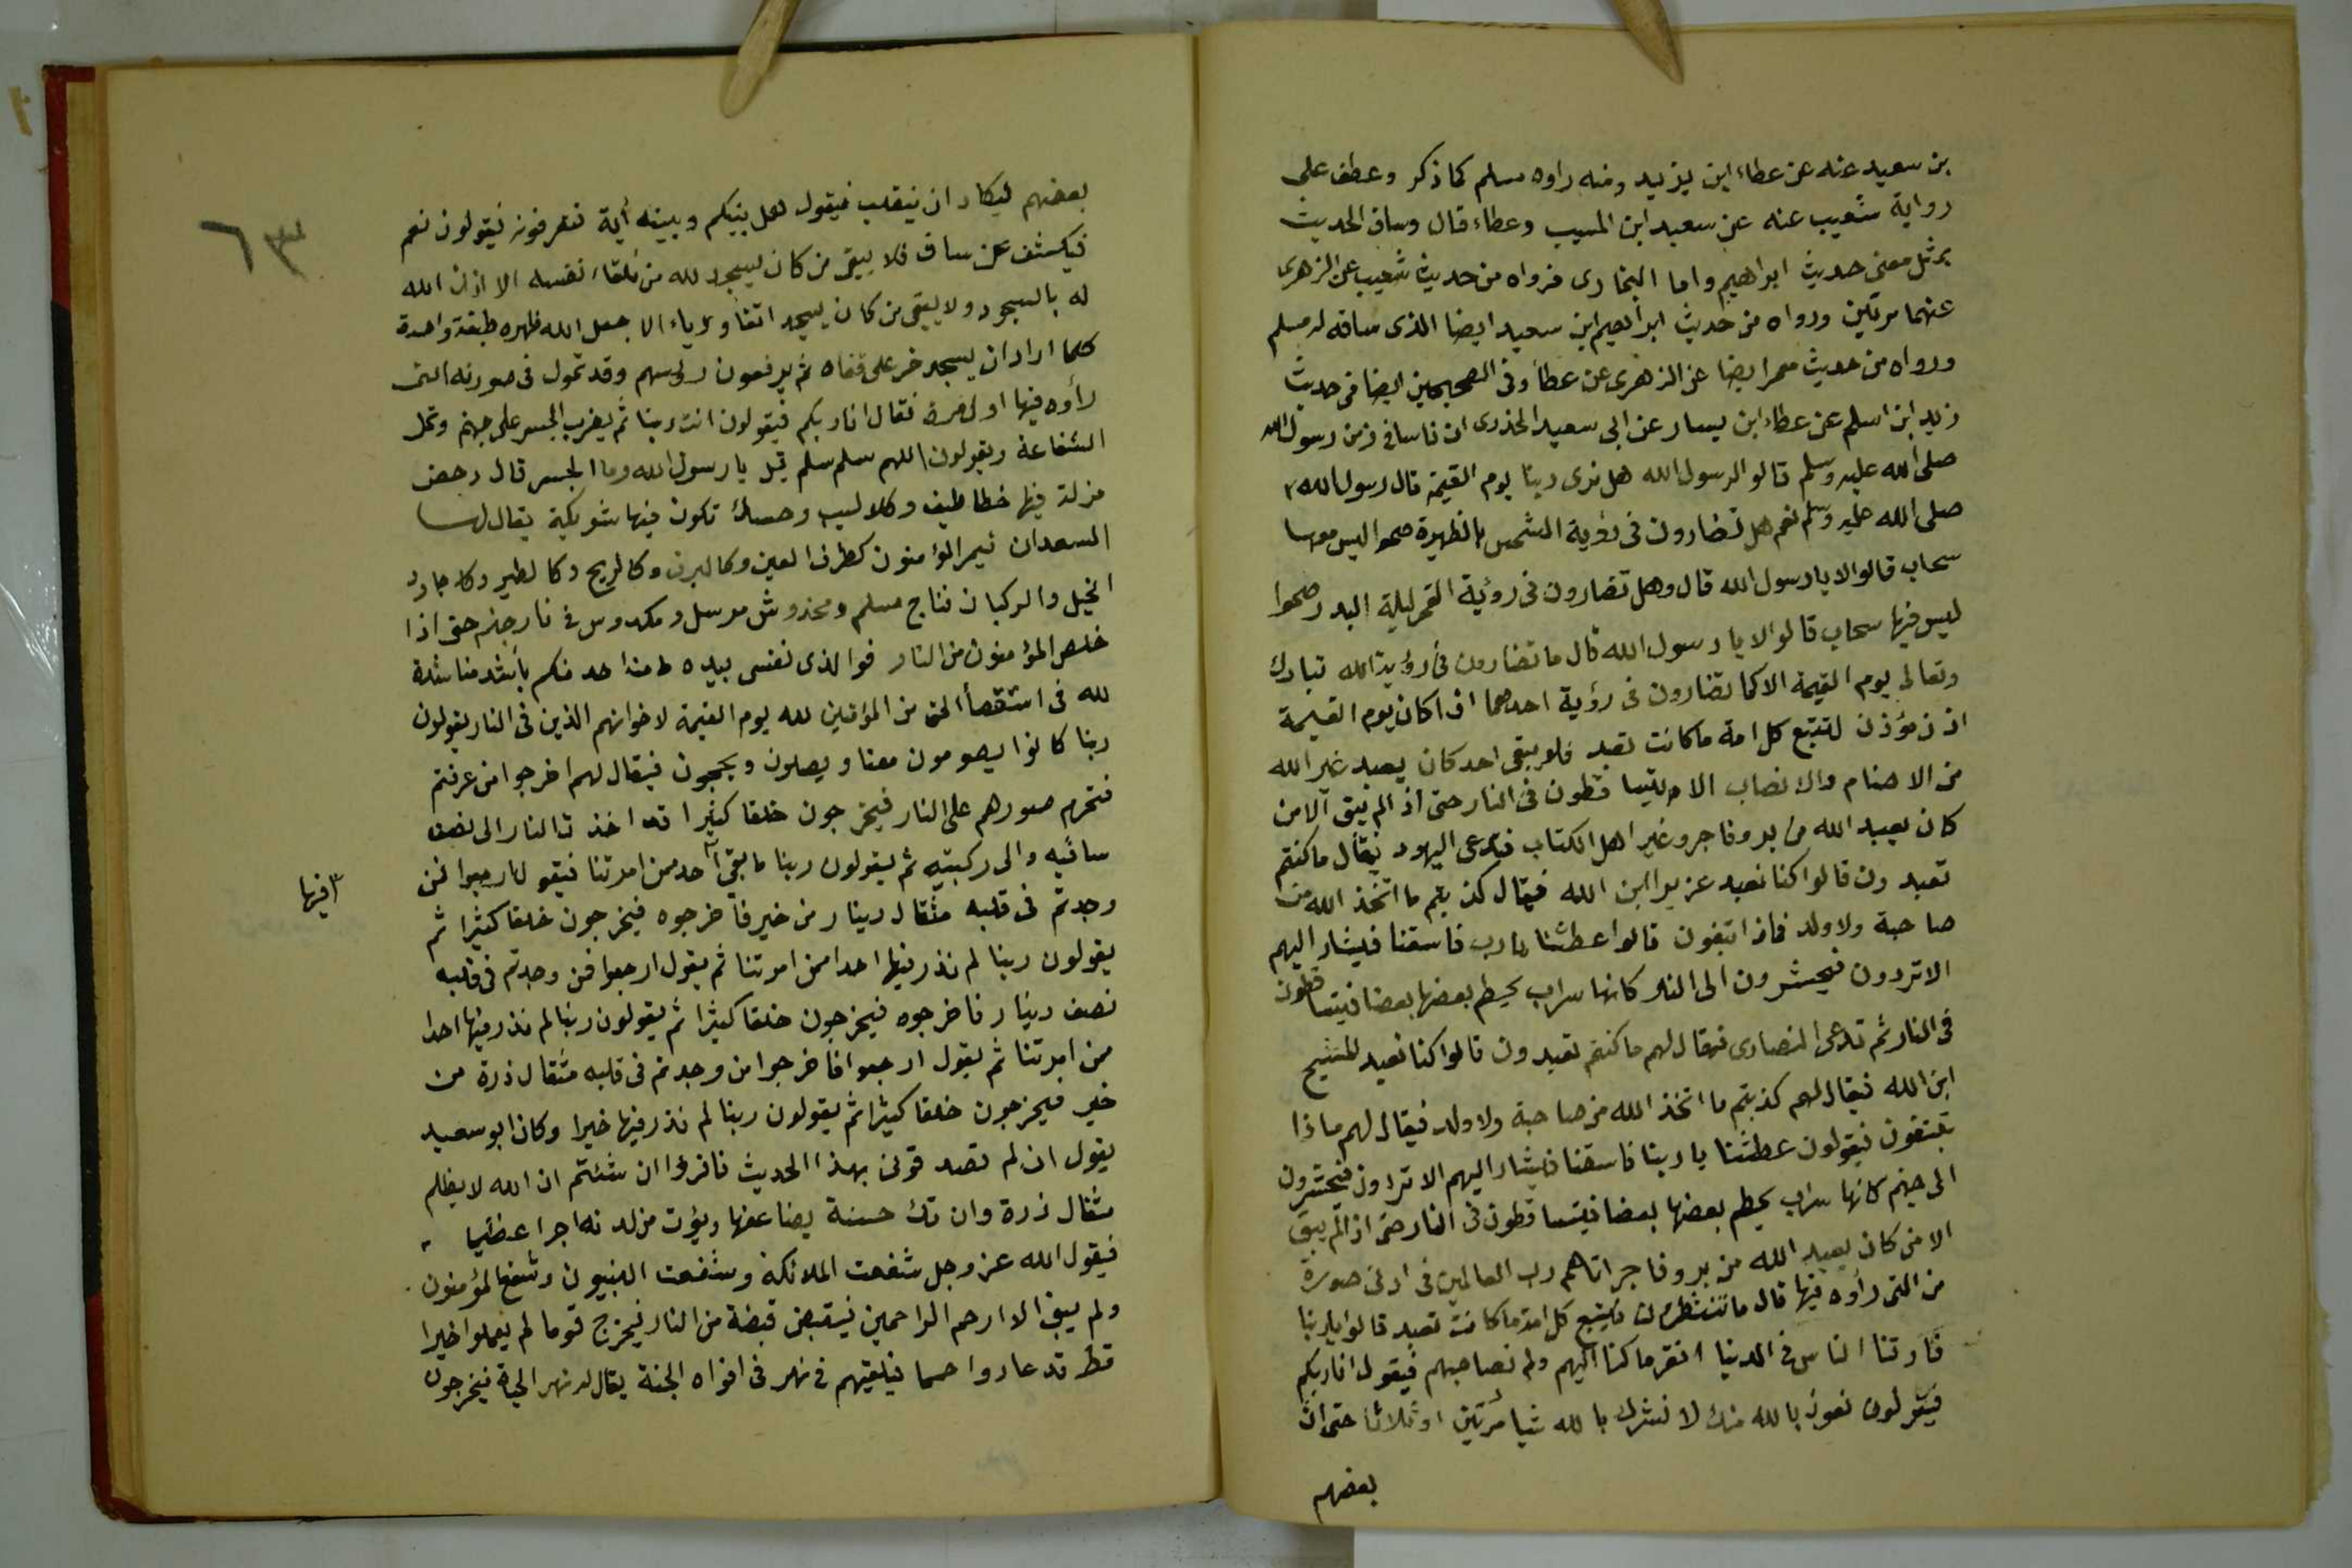 بن سعيد عنه عن عطاء ابن يزيد ومنه راوه مسلم كما ذكر وعطف على
رواية شعيب عنه عن سعيد ابن المسيب وعطاء قال وساق الحديث
بمثل معنى حديث ابراهيم واما البخارى فرواه من حديث شعيب عن الزهرى
عنهما مرتين ورواه من حديث ابراهيم ابن سعيد ايضا الذى ساقه له مسلم
ورواه من حديث معمر ايضا عن الزهرى عن عطأ وفى الصحيحين ايضا فى حديث
زيد ابن اسلم عن عطاء ابن يسار عن ابى سعيد الخذرى ان ناسا فى زمن رسول الله
صلى الله عليه وسلم قالوا لرسول الله هل نرى ربنا يوم القيمة قال رسول الله
صلى الله عليه وسلم نعم هل تضارون فى رؤية الشمس بالظهيرة صحوا ليس معها
سحاب قالوا لا يا رسول الله قال وهل تضارون فى رؤية القمر ليلة البدر صحوا
ليس فيها سحاب قالوا لا يا رسول الله قال ما تضارون فى رؤية الله تبارك
وتعالى يوم القيمة الا كما تضارون فى رؤية احدهما اذا كان يوم القيمة
اذن مؤذن لتتبع كل امة ما كانت تعبد فلا يبقى احد كان يعبد غير الله
من الاصنام والانصاب الا يتساقطون فى النار حتى اذا لم يبق الا من
كان يعبد الله من بر وفاجر وغير اهل الكتاب فتدعى اليهود فيقال ما كنتم
تعبدون قالوا كنا نعبد عزيرا ابن الله فيقال كذبتم ما اتخذ الله من
صاحبة ولا ولد فماذا تبغون قالوا عطشنا يا رب فاسقنا فيشار اليهم
الا تردون فيحشرون الى النار كانها سراب يحطم بعضها بعضا فيتساقطون
فى النار ثم تدعى النصارى فيقال لهم ما كنتم تعبدون قالوا كنا نعبد المسيح
ابن الله فيقال لهم كذبتم ما اتخذ الله من صاحبة ولا ولد فيقال لهم ماذا
تبتغون فيقولون عطشنا يا ربنا فاسقنا فيشار اليهم الا تردون فيحشرون
الى جهنم كانها سراب يحطم بعضها بعضا فيتساقطون فى النار حتى اذا لم يبق
الا من كان يعبد الله من بر وفاجر اتاهم رب العالمين فى ادنى صورة
من التى رأوه فيها قال ما تنتظرون فيتبع كل امة ما كانت تعبد قالوا يا ربنا
فارقنا الناس فى الدنيا افقر ما كنا اليهم ولم نصاحبهم فيقول انا ربكم
فيقولون نعوذ بالله منك لا نشرك بالله شيا مرتين او ثلاثا حتى ان
بعضهم
٦٣
بعضهم ليكاد ان ينقلب فيقول هل بينكم وبينه أية تعرفونه فيقولون نعم
فيكشف عن ساق فلا يبقى من كان يسجد لله من تلقاء نفسه الا اذن الله
له بالسجود ولا يبقى من كان يسجد اتقأ ورياء الا جعل الله ظهره طبقة واحدة
كلما اراد ان يسجد خر على قفاه ثم يرفعون رؤسهم وقد تحول فى صورته التى
رأوه فيها اول مرة فقال انا ربكم فيقولون انت ربنا ثم يضرب الجسر على جهنم وتحل
الشفاعة ويقولون اللهم سلم سلم قيل يا رسول الله وما الجسر قال دحض
مزلة فيها خطاطيف وكلاليب وحسك تكون فيها شويكة يقال لها
السعدان فيمر المؤمنون كطرف العين وكالبرق وكالريح وكالطير وكاجاود
الخيل والركبان فناج مسلم ومخدوش مرسل ومكدوس فى نار جهنم حتى اذا
خلص المؤمنون من النار فوالذى نفسى بيده ما من احد منكم بأشد مناشدة
لله فى استقصأ الحق من المؤمنين لله يوم القيمة لاخوانهم الذين فى النار يقولون
ربنا كانوا يصومون معنا ويصلون ويحجون فيقال لهم اخرجوا من عرفتم
فتحرم صورهم على النار فيخرجون خلقا كثيرا قد اخذت النار الى نصف
ساقيه والى ركبتيه ثم يقولون ربنا ما بقى احد ممن امرتنا فيقول ارجعوا فمن
٣ فيها
وجدتم فى قلبه مثقال دينار من خير فأخرجوه فيخرجون خلقا كثيرا ثم
يقولون ربنا لم نذر فيها احدا ممن امرتنا ثم يقول ارجعوا فمن وجدتم فى قلبه
نصف دينار فاخرجوه فيخرجون خلقا كثيرا ثم يقولون ربنا لم نذر فيها احدا
ممن امرتنا ثم يقول ارجعوا فاخرجوا من وجدتم فى قلبه مثقال ذرة من
خير فيخرجون خلقا كثيرا ثم يقولون ربنا لم نذر فيها خيرا وكان ابو سعيد
يقول ان لم تصدقونى بهذا الحديث فاقرؤا ان شئتم ان الله لا يظلم
مثقال ذرة وان تك حسنة يضاعفها ويؤت من لدنه اجرا عظيما
فيقول الله عز وجل شفعت الملائكة وشفعت النبيون وشفع المؤمنون
ولم يبق الا ارحم الراحمين فيقبض قبضة من النار فيخرج قوما لم يعملوا خيرا
قط قد عادوا حمما فيلقيهم فى نهر فى افواه الجنة يقال له نهر الحياة فيخرجون